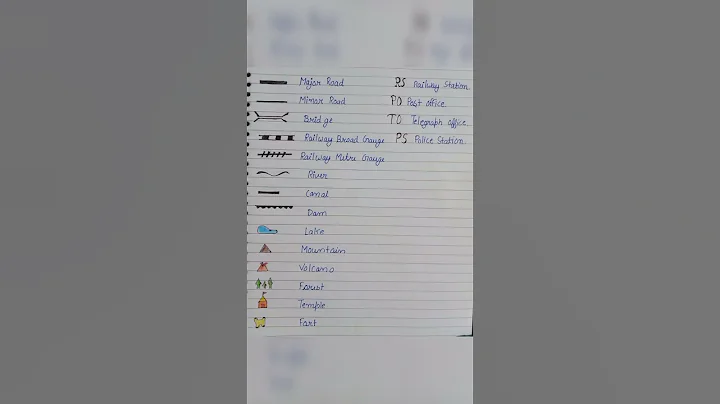 Major Road RS Railway Station
Minor Road PO Post office
Bridge TO Telegraph office
Railway Broad Gauge PS Police Station
Railway Mitre Gauge
River
Canal
Dam
Lake
Mountain
Volcano
Forest
Temple
Fort